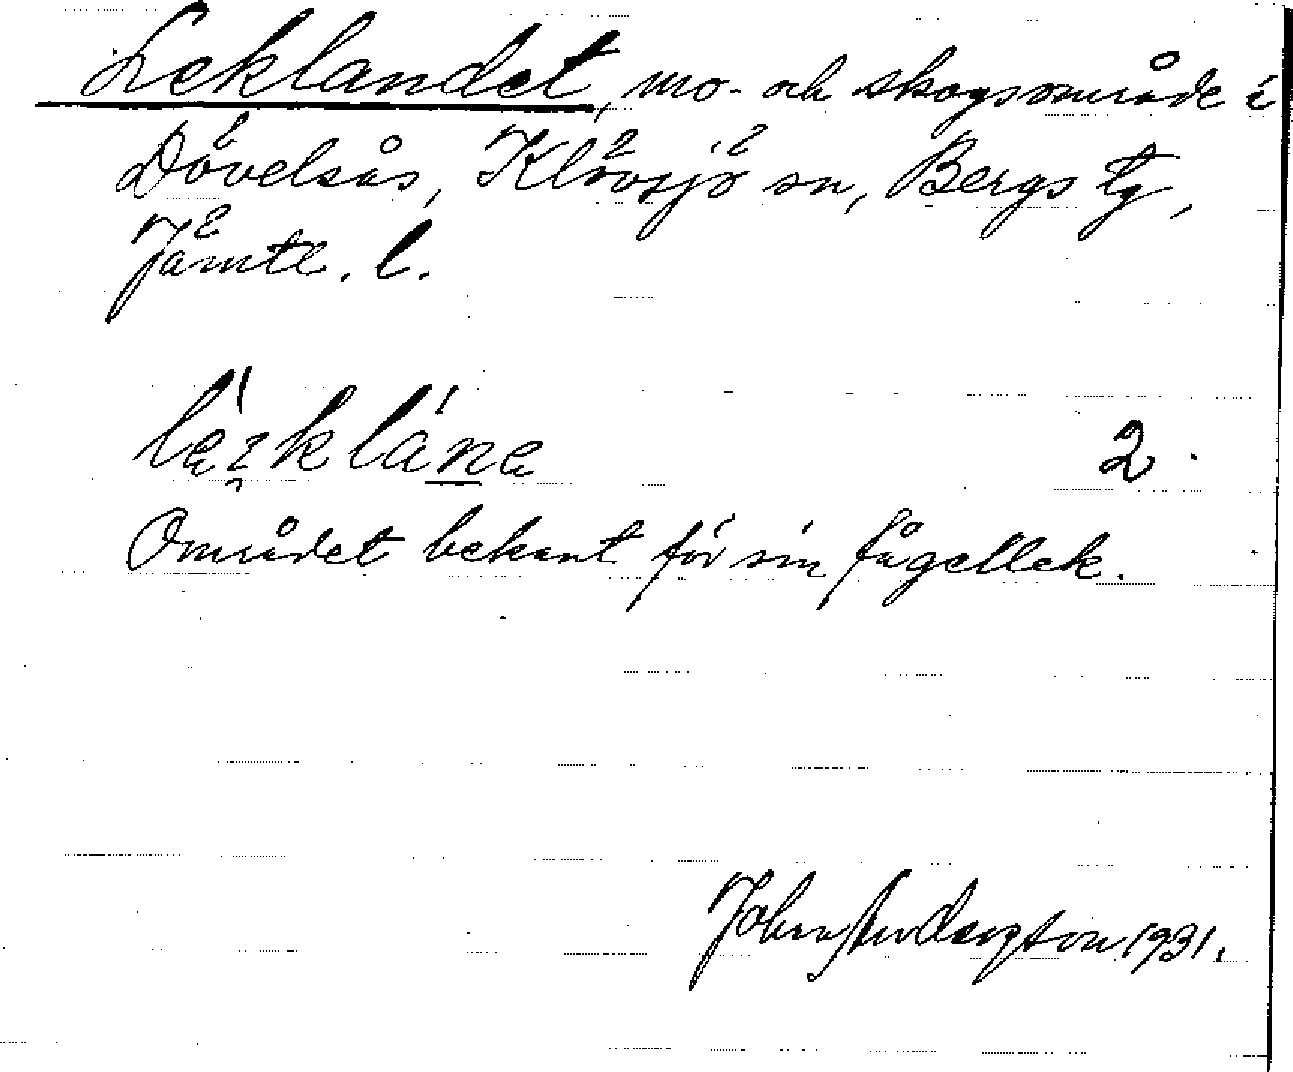 Leklandet, mo- och skogsområde i
Dövelsås, Klövsjö sn, Bergs tg,
Jämtl. l.
2.
Området bekant för sin fågellek.
John Anderzton 1931.